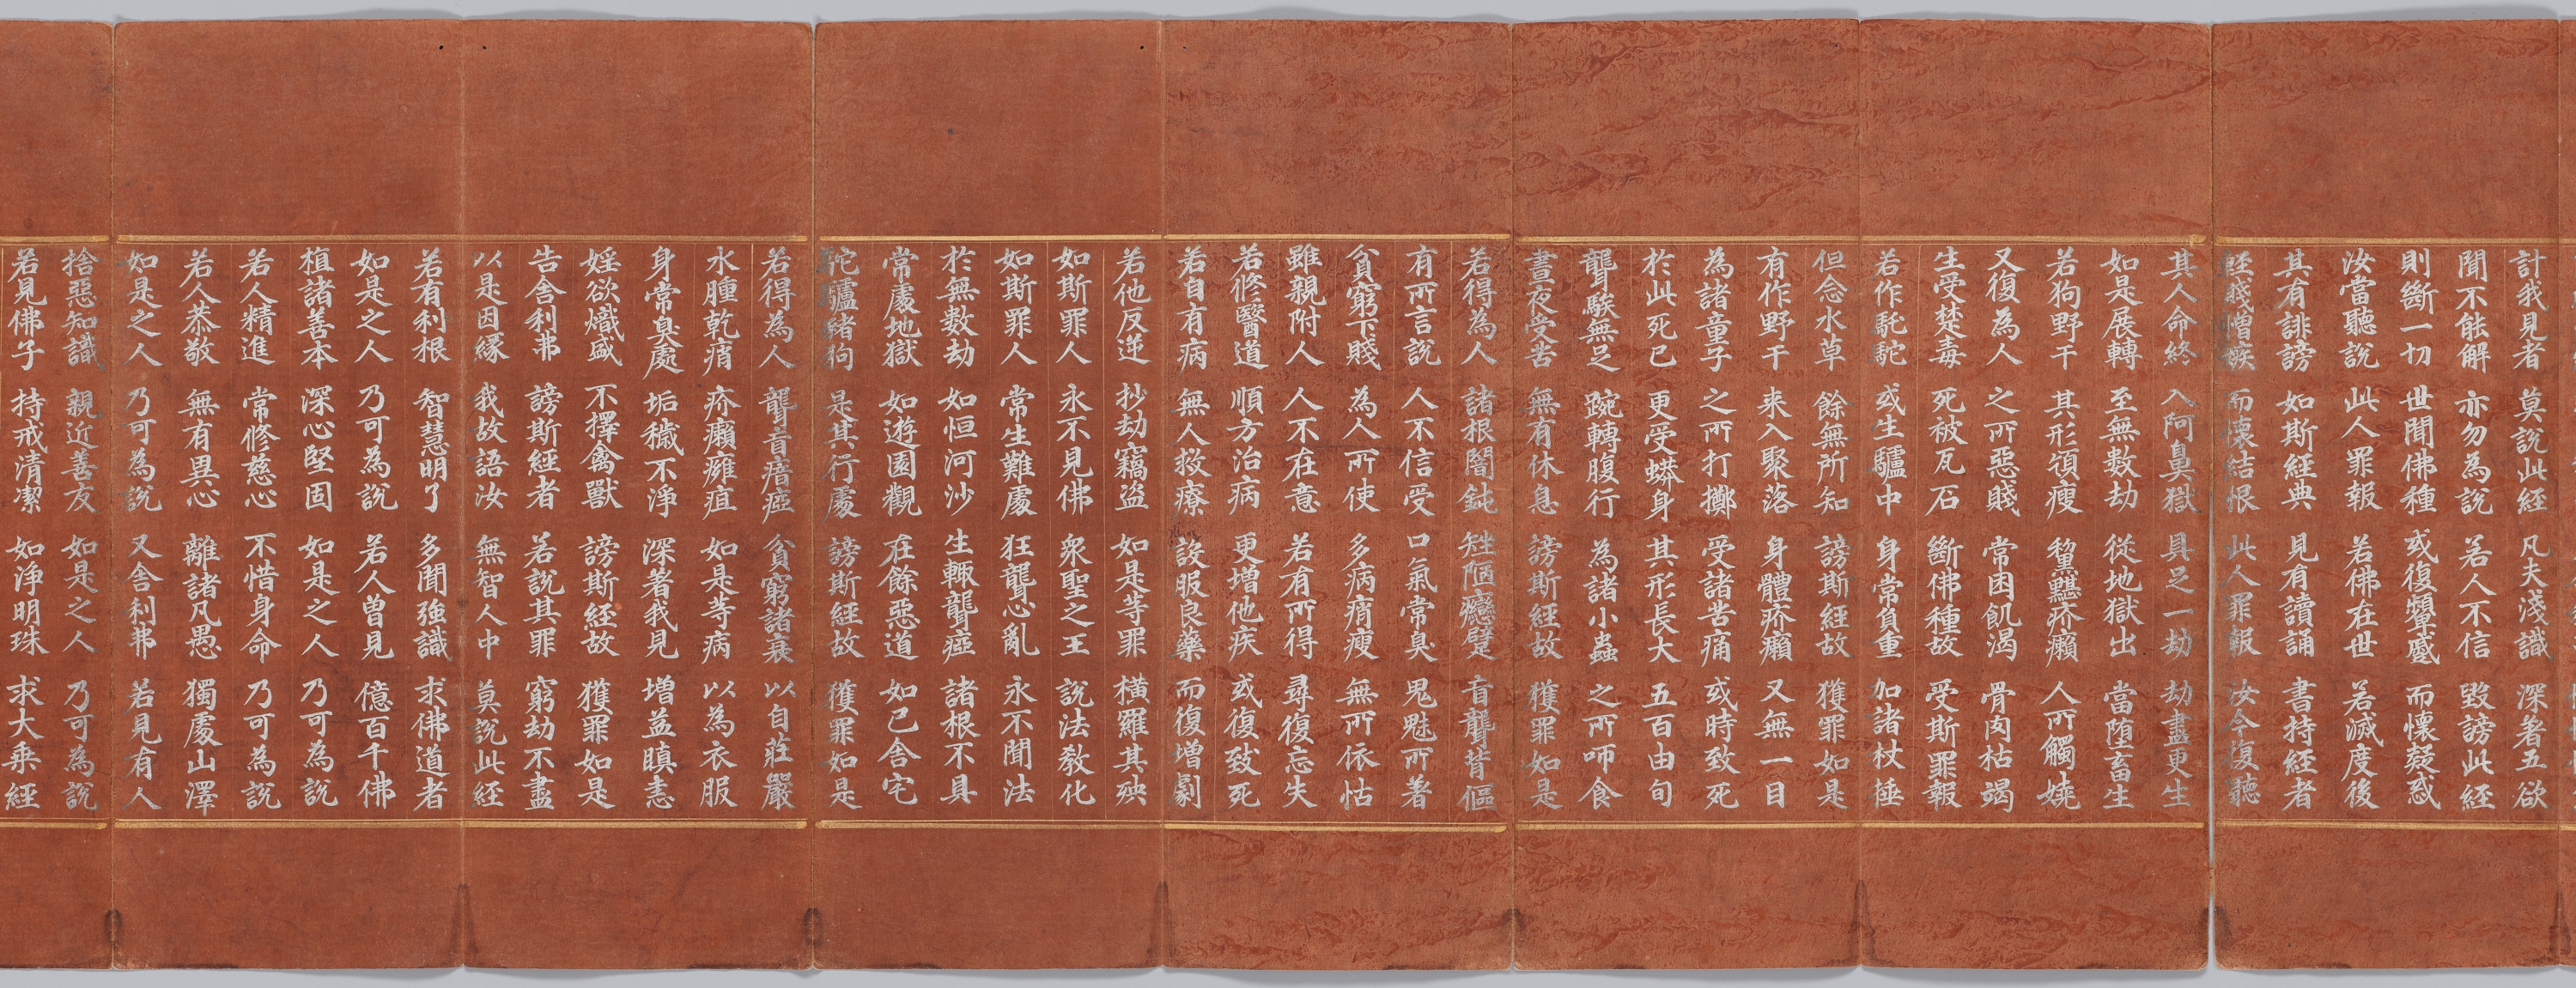 計我見者 莫說此經 凡夫淺識 深著五欲
聞不能解 亦勿為說 若人不信 毀謗此經
則斷一切 世間佛種 或復顰蹙 而懷疑惑
汝當聽說 此人罪報 若佛在世 若滅度後
其有誹謗 如斯經典 見有讀誦 書持經者
輕賤憎嫉 而懷結恨 此人罪報 汝今復聽
其人命終 入阿鼻獄 具足一劫 劫盡更生
如是展轉 至無數劫 從地獄出 當墮畜生
若狗野干 其形頒瘦 黧黮疥癩 人所觸嬈
又復為人 之所惡賤 常困飢渴 骨肉枯竭
生受楚毒 死被瓦石 斷佛種故 受斯罪報
若作馲駝 或生驢中 身常負重 加諸杖捶
但念水草 餘無所知 謗斯經故 獲罪如是
有作野干 来入聚落 身體疥癩 又無一目
為諸童子 之所打擲 受諸苦痛 或時致死
於此死已 更受蟒身 其形長大 五百由旬
聾騃無足 踠轉腹行 為諸小蟲 之所唼食
晝夜受苦 無有休息 謗斯經故 獲罪如是
若得為人 諸根闇鈍 矬陋癵躄 盲聾背傴
有所言說 人不信受 口氣常臭 鬼魅所著
貧窮下賤 為人所使 多病痟瘦 無所依怙
雖親附人 人不在意 若有所得 尋復忘失
若修醫道 順方治病 更增他疾 或復致死
若自有病 無人救療 設服良藥 而復增劇
若他反逆 抄劫竊盜 如是等罪 橫羅其殃
如斯罪人 永不見佛 衆聖之王 說法教化
如斯罪人 常生難處 狂聾心亂 永不聞法
於無數劫 如恒河沙 生輒聾瘂 諸根不具
常處地獄 如遊園觀 在餘惡道 如己舍宅
駝驢猪狗 是其行處 謗斯經故 獲罪如是
若得為人 聾盲瘖瘂 貧窮諸衰 以自莊嚴
水腫乾痟 疥癩癰疽 如是等病 以為衣服
身常臭處 垢穢不淨 深著我見 增益瞋恚
婬欲熾盛 不擇禽獸 謗斯經故 獲罪如是
告舍利弗 謗斯經者 若說其罪 窮劫不盡
以是因緣 我故語汝 無智人中 莫說此經
若有利根 智慧明了 多聞強識 求佛道者
如是之人 乃可為說 若人曾見 億百千佛
植諸善本 深心堅固 如是之人 乃可為說
若人精進 常修慈心 不惜身命 乃可為說
若人恭敬 無有異心 離諸凡愚 獨處山澤
如是之人 乃可為說 又舍利弗 若見有人
捨惡知識 親近善友 如是之人 乃可為說
若見佛子 持戒清潔 如淨明珠 求大乘經